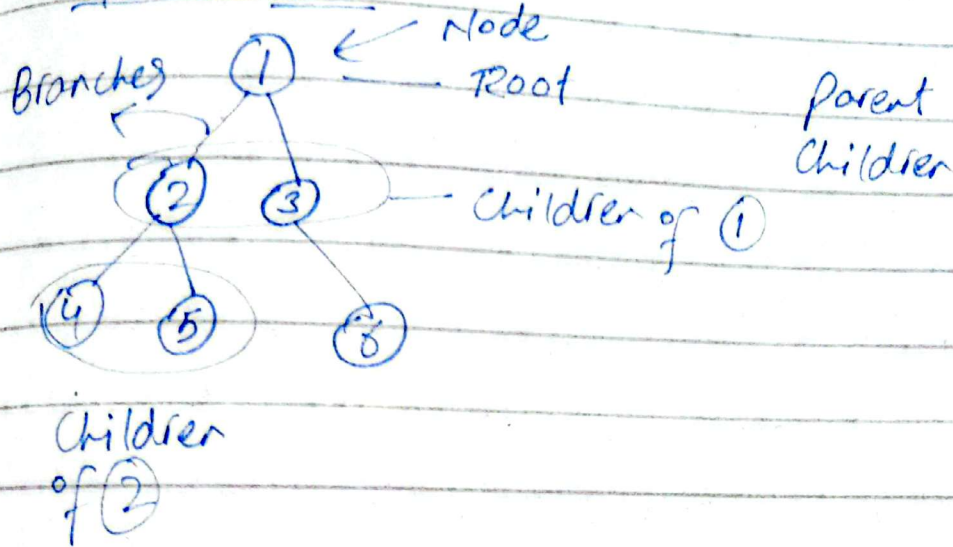 Node
Root
Branches
1
Parent
Children
2
3
Children of 1
4
5
6
Children
of 2